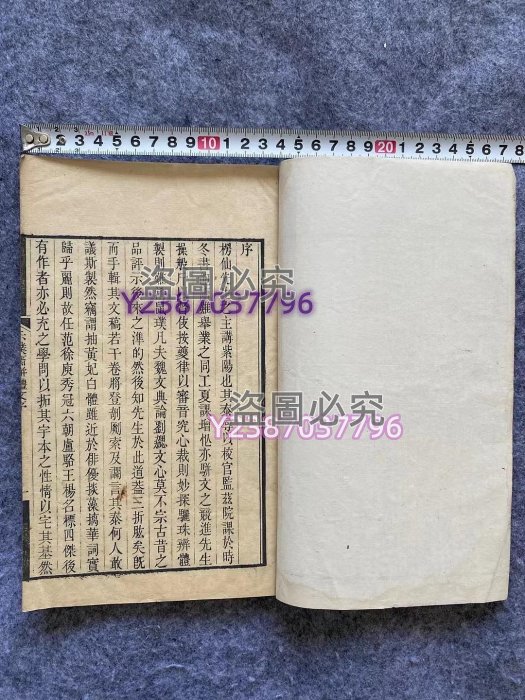 2 3 4 5 6 7 8 9 10 1 2 3 4 5 6 7 8 9 20 1 2 3 4 5 6 7 8
序
楞仙 主講紫陽也其 以校官監茲院課於時
冬 舉業之同工夏課 亦駢文之競進先生
操 按夔律以審音究心裁則妙探驪珠辨體
製則 璞凡夫魏文典論劉勰文心莫不宗古昔之
品評示後來之準的然後知先生於此道蓋三折肱矣旣
而手輯其文稿若干卷將登剞劂索及謭言其泰何人敢
議斯製然竊謂抽黃妃白體雖近於俳優摛華詞實
歸乎麗則故任范徐庾秀冠六朝盧駱王楊名標四傑後
有作者亦必充之學問以拓其宇本之性情以宅其基然
盜圖必究
Y2587057796
盜圖必究
Y2587057796